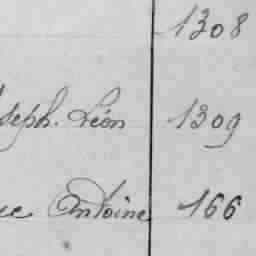 1308
seph. Léon 1309
ue Antoine 166